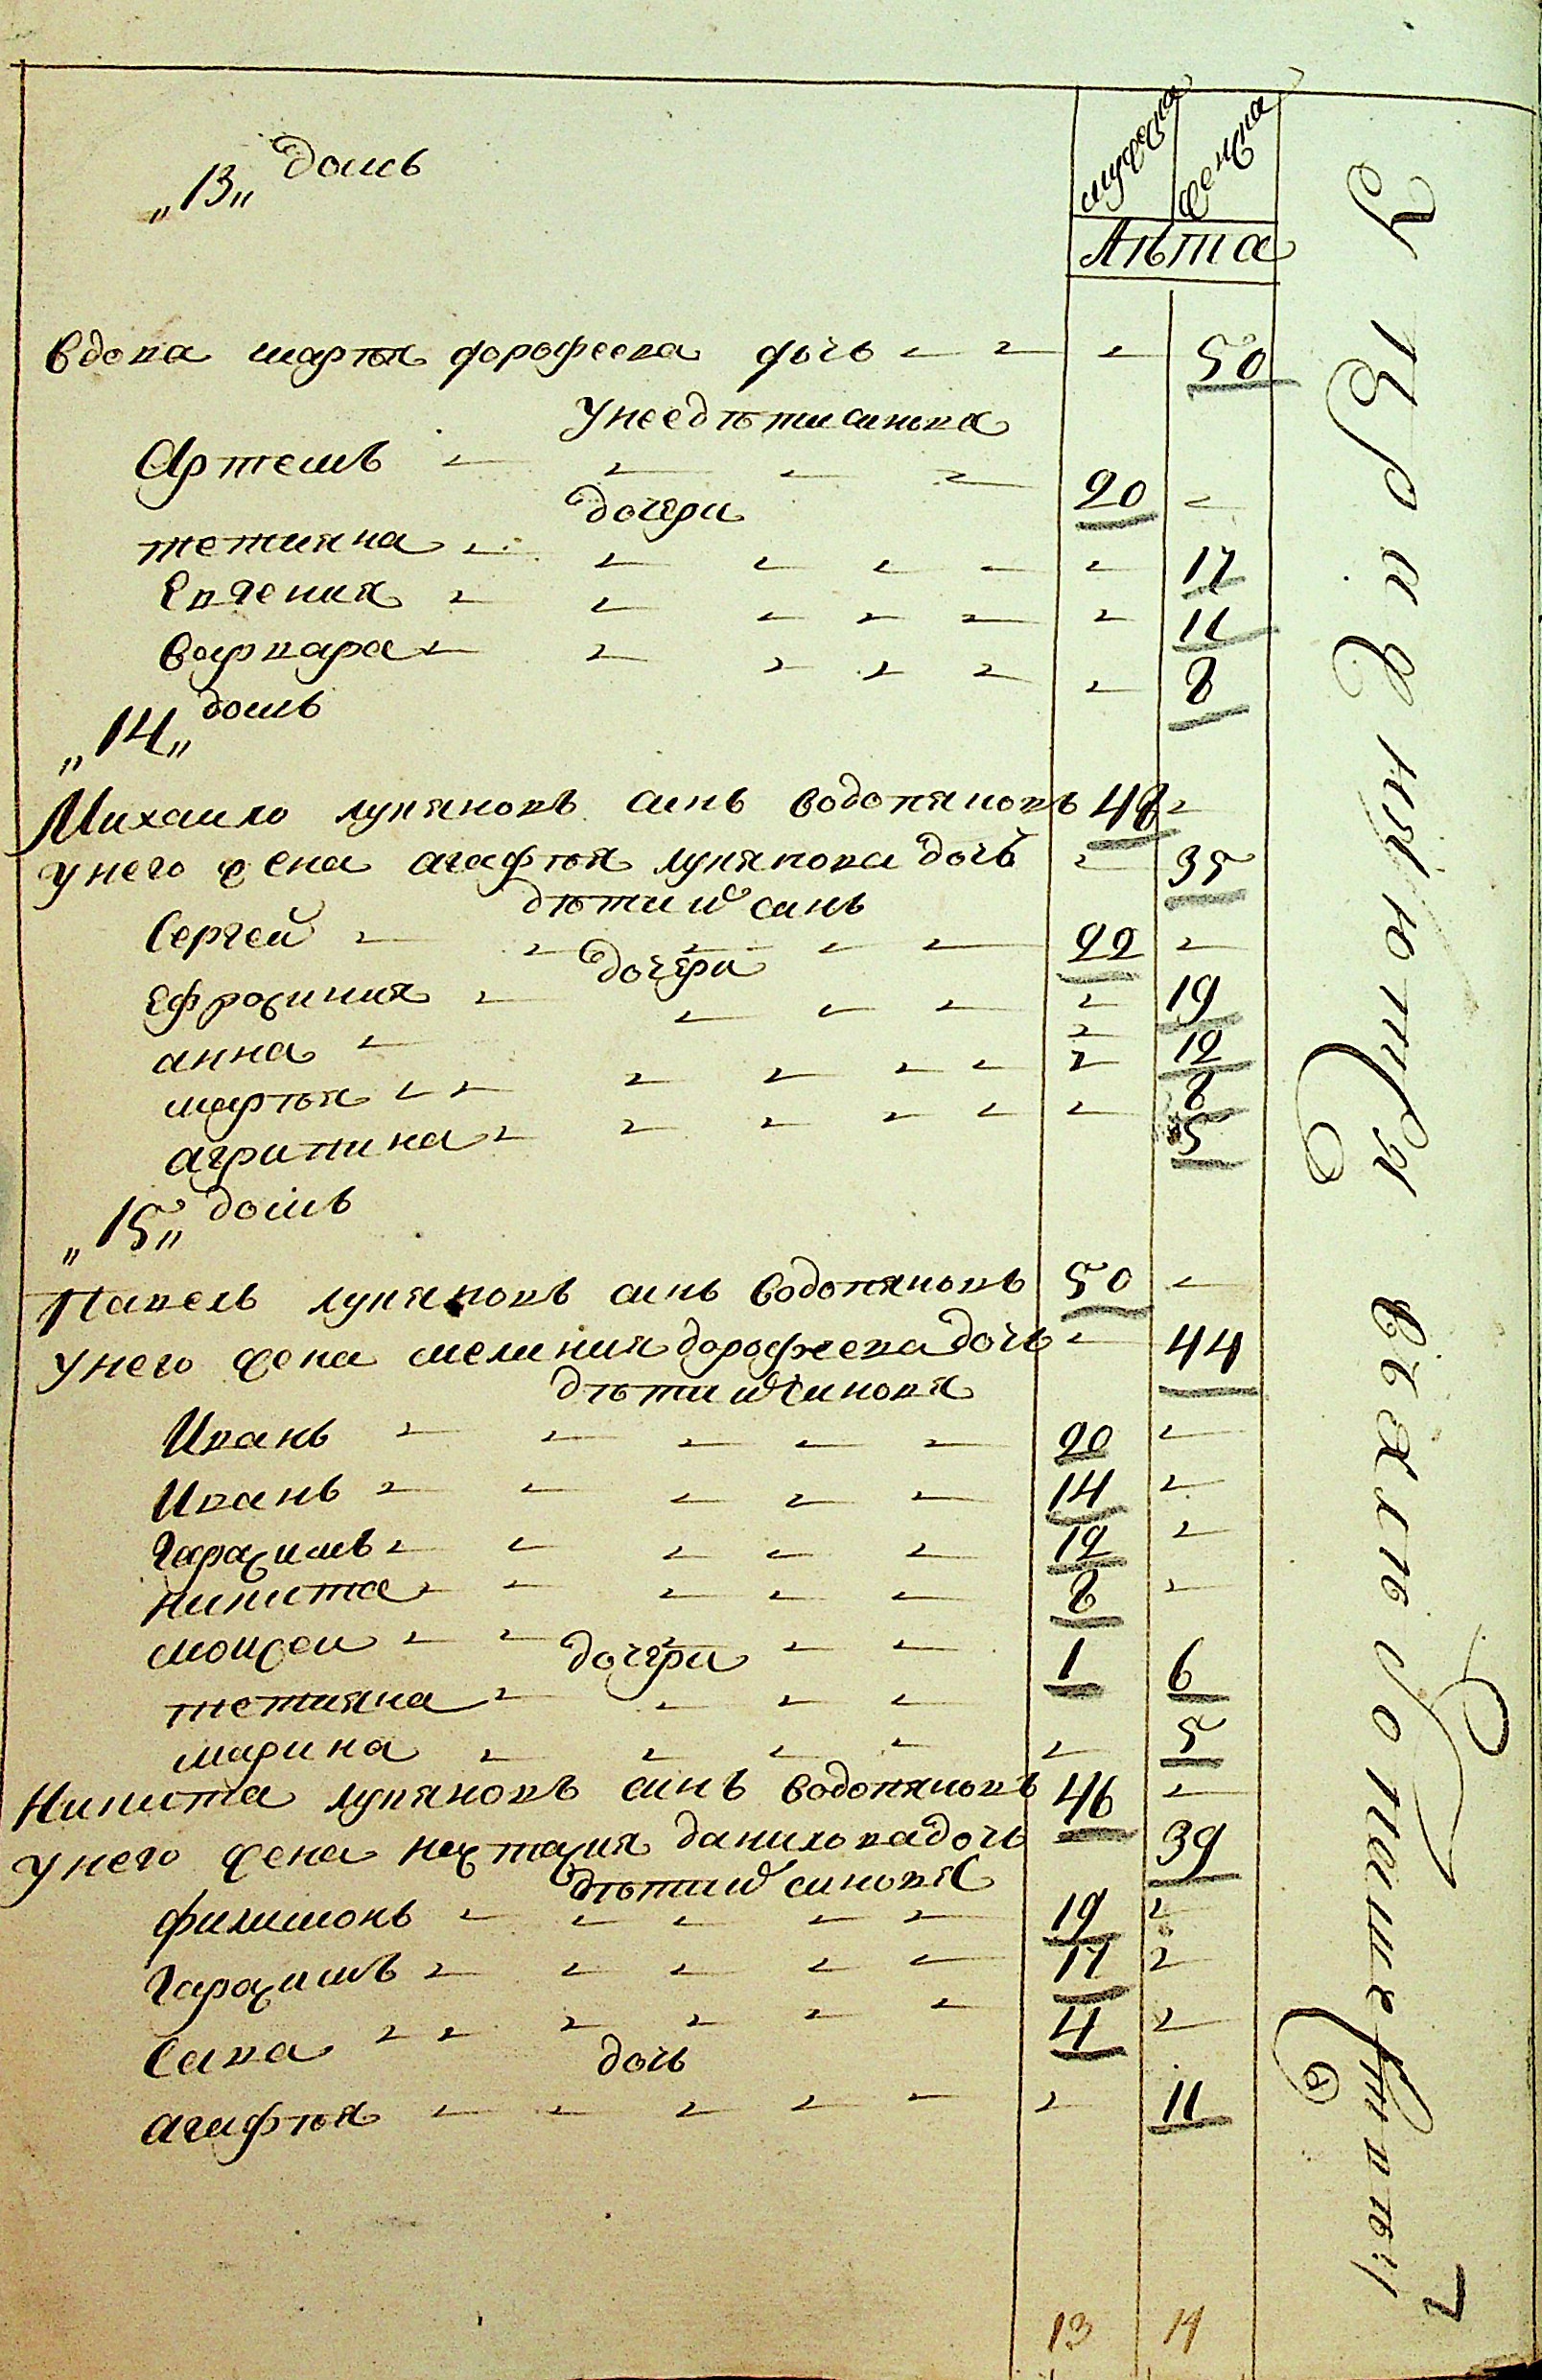 мужеска женска
Лѣта
„13„ домъ
вдова марѳя дорофеева дочь 50
У нее дѣти синовя
Артемъ 20
дочери
тетияна 17
Евгения 11
варвара 8
„14„ домъ
Михаило лукяновъ синъ водопяновъ 48
у него жена агафѣя лукянова дочь 35
дѣти их синъ
Сергей 22
дочери
Ефросиния 19
анна 12
марѳѣя 8
агрипина 5
„15„ домъ
Павелъ лукяновъ синъ водопяновъ 50
у него жена мелания дорофеева дочь 44
дѣти их синовя
Иванъ 20
Иванъ 14
Гарасимъ 12
никита 8
моисеи 1
дочери
тетияна 6
марина 5
Никита лукяновъ синъ водопяновъ 46
у него жена настасия данилова дочь 39
дѣти их синовя
филимонъ 19
Гарасимъ 17
Сава 4
дочь
агафѣя 11
13 14